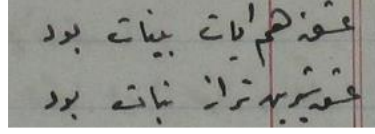 عشق هم ایات بینات بود
عشق شیرین تر از نبات بود